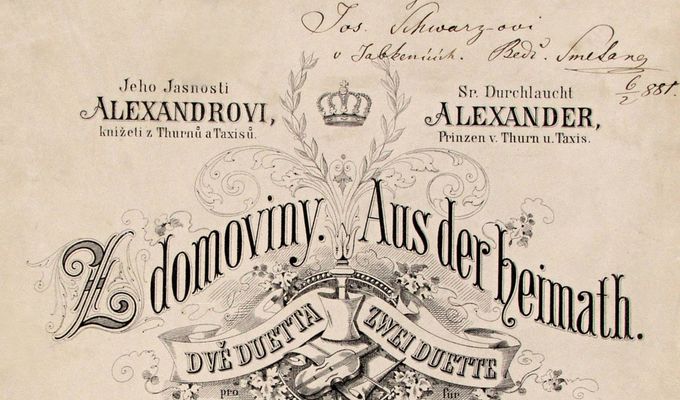 Jos. Schwarz-ovi
v Jabkenicích. Bedř. Smetana
6/2 881.
Jeho Jasnosti
ALEXANDROVI,
knížeti z Thurnů a Taxisů.
Sr. Durchlaucht
ALEXANDER,
Prinzen v. Thurn u. Taxis.
Z domoviny. Aus der heimath.
DVĚ DUETTA ZWEI DUETTE
pro für